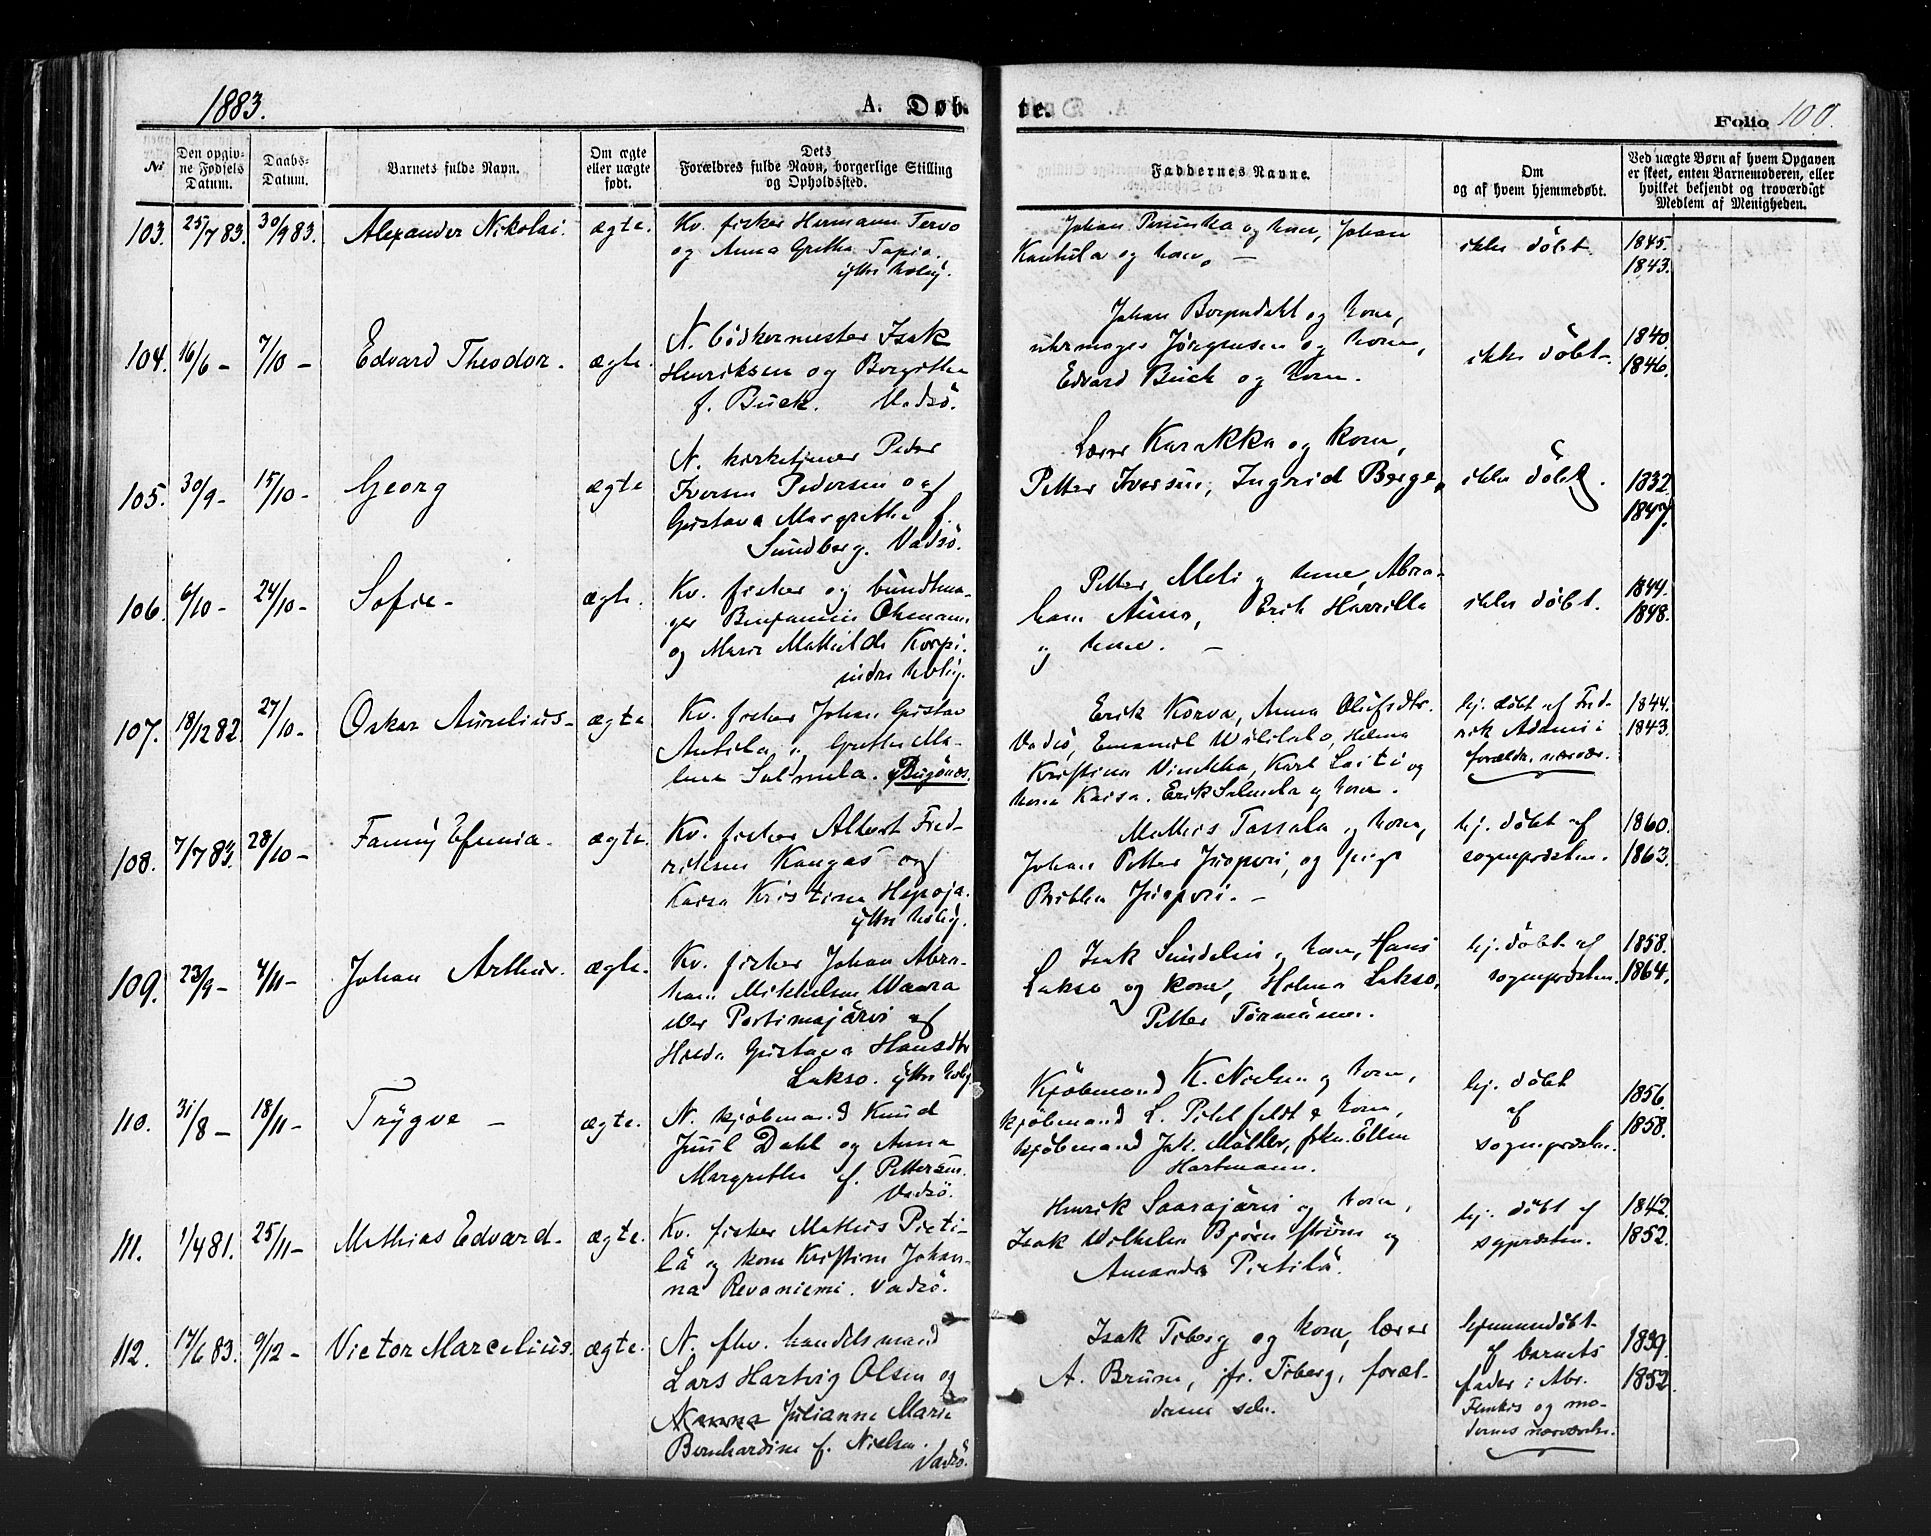 1883.
A. Døb-
te.
Folio 100.
No
Den opgiv-
ne Fødsels
Datum.
Daabs-
Datum.
Barnets fulde Navn.
Om ægte
eller uægte
født.
Dets
Forældres fulde Navn, borgerlige Stilling
og Opholdssted.
Faddernes Navne.
Om
og af hvem hjemmedøbt.
Ved uægte Børn af hvem Opgaven
er skeet, enten Barnemoderen, eller
hvilket bekjendt og troværdigt
Medlem af Menigheden.
103. 25/7 83. 30/9 83. Alexander Nikolai. ægte.
Kv. fisker Hermann Tervo
og Anna Gretha Tapio.
ytre kolvig.
Johan og kone, Johan
Kantula og kone. —
ikke døbt.
1845.
1843.
104. 16/6 – 7/10 – Edvard Theodor. ægte.
N. bødkermester Isak
Henriksen og Bergitha
f. Buck. Vadsö.
Johan Borgendahl og kone,
uhrmager Jörgensen og kone,
Edvard Buck og kone.
ikke döbt –
1840.
1846.
105. 30/9 – 15/10 – Georg ægte
N. kirketjener Peder
Iversen Pedersen og
Gustava Margretha f.
Sundberg. Vadsö.
Lærer Karakka og kone,
Petter Iversen, Ingrid Berge.
ikke döbt.
1832.
1847.
106. 6/10 – 24/10 – Sofie – ægte.
Kv. fisker og bundtma-
ger Benjamin Ohmann
og Marie Mathilde Korpi.
indre kolvig.
Petter Meli og kone, Abra-
ham Auno, Erik Harrilla
og kone. —
ikke döbt.
1844.
1848.
107. 18/12 82. 27/10 – Oskar Aurelius – ægte
Kv. fisker Johan Gustav
Antila og Gretha Ma-
lena Salmela. Bugönæs.
Erik Korva, Anna Olufsdtr.
Vadsö, Emanuel Helena
Kristina Vinikka, Karl Laiti og
kone Kaisa. Erik Salmela og kone.
hj. döbt af Fred-
rik Adami i
forældr. nærvær.
1844.
1843.
108. 7/7 83. 28/10 – Fanny Efemia. ægte.
Kv. fisker Albert Fred-
riksen Kangas og
Kaisa Kristina Hepoja.
ytre kolvig.
Mathis Tassala og kone,
Johan Petter og pige
hj. döbt af
sognepræsten.
1860.
1863.
109. 23/9 – 4/11 – Johan Arthur. ægte.
Kv. fisker Johan Abra-
ham Mikkelsen Waara
eller Portimojärvi og
Hulda Gustava Hansdtr
Lakso. ytre kolvig
Isak Sundelin og kone, Hans
Lakso og kone, Helena Lakso,
Petter Törmänen.
hj. döbt af
sognepræsten.
1858.
1864.
110. 31/8 – 18/11 – Trygve – ægte.
N. kjöbmand Knud
Juul Dahl og Anna
Margretha f. Pettersen.
Vadsö.
Kjöbmand K. Nielsen og kone,
kjöbmand L. Pitelfeldt & kone,
kjöbmand Jak. Möller, frkn. Ellen
Hartmann.
hj. döbt
af
sognepræsten.
1856.
1858.
111. 1/4 81. 25/11 – Mathias Edvard – ægte.
Kv. fisker Mathis Pieti-
lä og kone Kristina Johan-
na Revaniemi. Vadsö.
Henrik Saarajärvi og kone,
Isak Wilhelm Björnström og
Amanda Pietilä.
hj. döbt af
sgpræsten.
1842.
1852.
112. 17/6 83. 9/12 – Victor Marcelius. ægte.
N. fhv. handelsmand
Lars Hartvig Olsen og
Julianne Marie
Bernhardine f. Nielsen.
Vadsö.
Isak Tiberg og kone, lærer
A. Bruun, jfr. Tiberg, foræl-
drene selv.
hjemmedöbt
af barnets
fader i Abr.
og mo-
derens nærværelse.
1839.
1852.